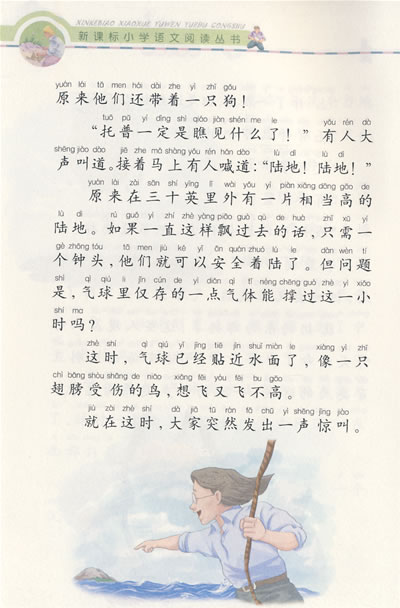 XINKEBIAO XIAOXUE YUWEN YUEDU CONGSHU
新课标小学语文阅读丛书
yuán lái tā men hái dài zhe yì zhī gǒu
原来他们还带着一只狗！
tuō pǔ yí dìng shì qiáo jiàn shén me le yǒu rén dà
“托普一定是瞧见什么了！”有人大
shēng jiào dào jiē zhe mǎ shàng yǒu rén hǎn dào lù dì lù dì
声叫道。接着马上有人喊道：“陆地！陆地！”
yuán lái zài sān shí yīng lǐ wài yǒu yí piàn xiāng dāng gāo de
原来在三十英里外有一片相当高的
lù dì rú guǒ yì zhí zhè yàng piāo guò qù de huà zhǐ xū yí
陆地。如果一直这样飘过去的话，只需一
gè zhōng tóu tā men jiù kě yǐ ān quán zhuó lù le dàn wèn tí
个钟头，他们就可以安全着陆了。但问题
shì qì qiú lǐ jǐn cún de yì diǎn qì tǐ néng chēng guò zhè yì xiǎo
是，气球里仅存的一点气体能撑过这一小
shí ma
时吗？
zhè shí qì qiú yǐ jīng tiē jìn shuǐ miàn le xiàng yì zhī
这时，气球已经贴近水面了，像一只
chì bǎng shòu shāng de niǎo xiǎng fēi yòu fēi bù gāo
翅膀受伤的鸟，想飞又飞不高。
jiù zài zhè shí dà jiā tū rán fā chū yì shēng jīng jiào
就在这时，大家突然发出一声惊叫。